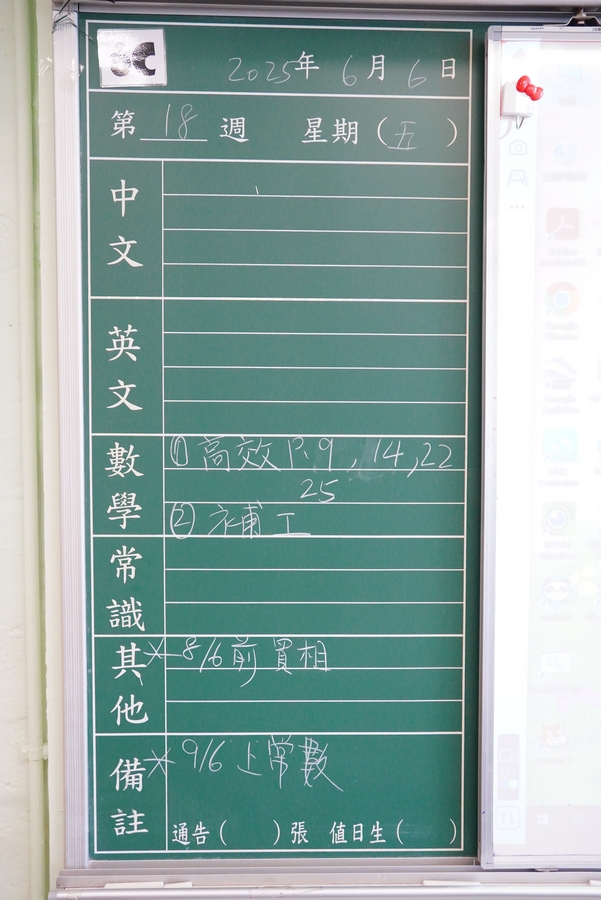 5C
2025年 6月 6日
第 18 週 星期(五)
中文
英文
數學
① 高效 P.9, 14, 22
25
② 補工
常識
其他
* 8/6前買相
備註
* 9/6 上常數
通告( )張 值日生( )